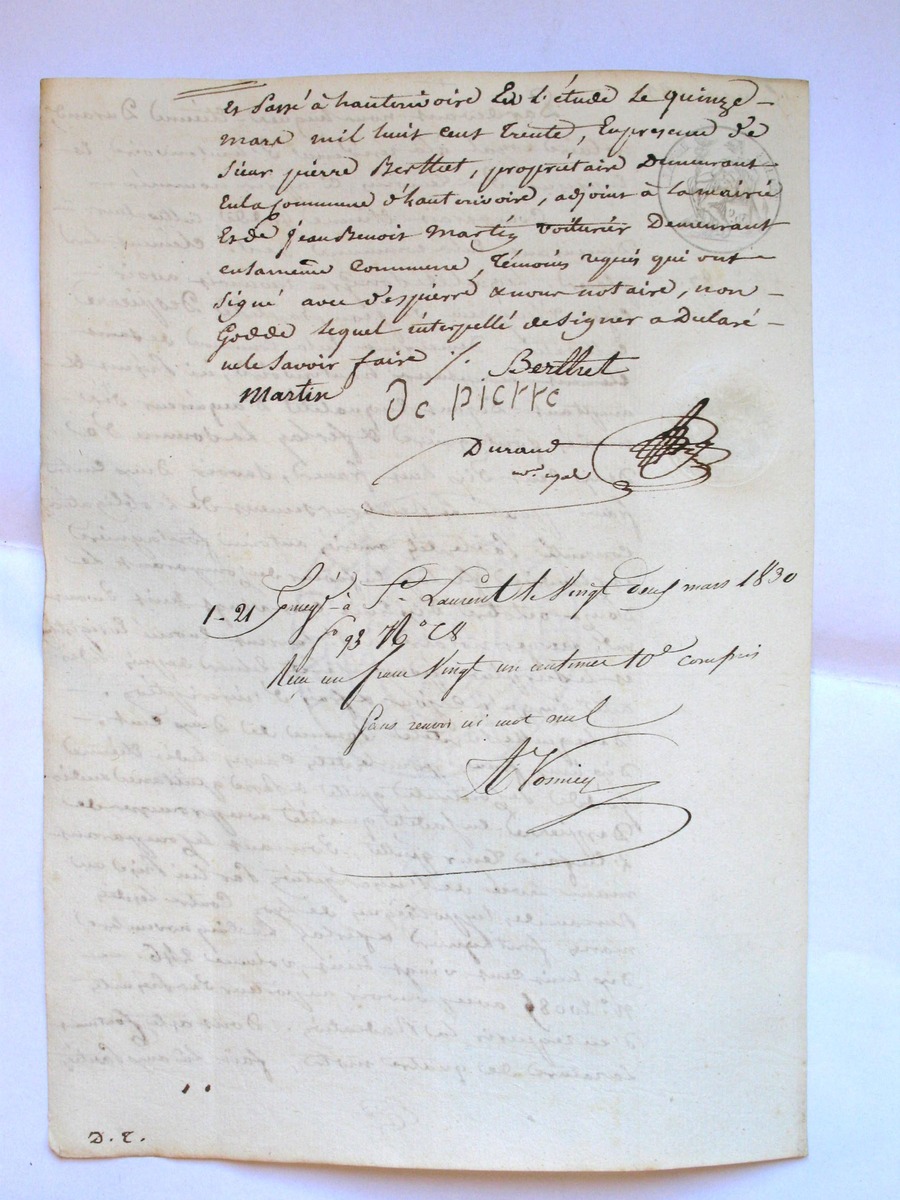 et Passé à hauterivoire En L'étude Le quinze
mars mil huit cent Trente, En presence de
Sieur pierre Berthet, propriétaire Demeurant
En la Commune d'hauterivoire, adjoint à la mairie
Et de jean Benoit Martin voiturier Demeurant
en la même Commune, Témoins requis qui ont
Signé avec Despierre & nous notaire, non
Godde Lequel interpellé de Signer a Déclaré
ne le Savoir faire ./.
Berthet
Martin
De pierre
Durand
1-21
à St Laurent le Vingt deux mars 1830
fo 93 No C8
Reçu un franc Vingt un centimes 10e compris
Sans renvoi ni mot nul
D. T.